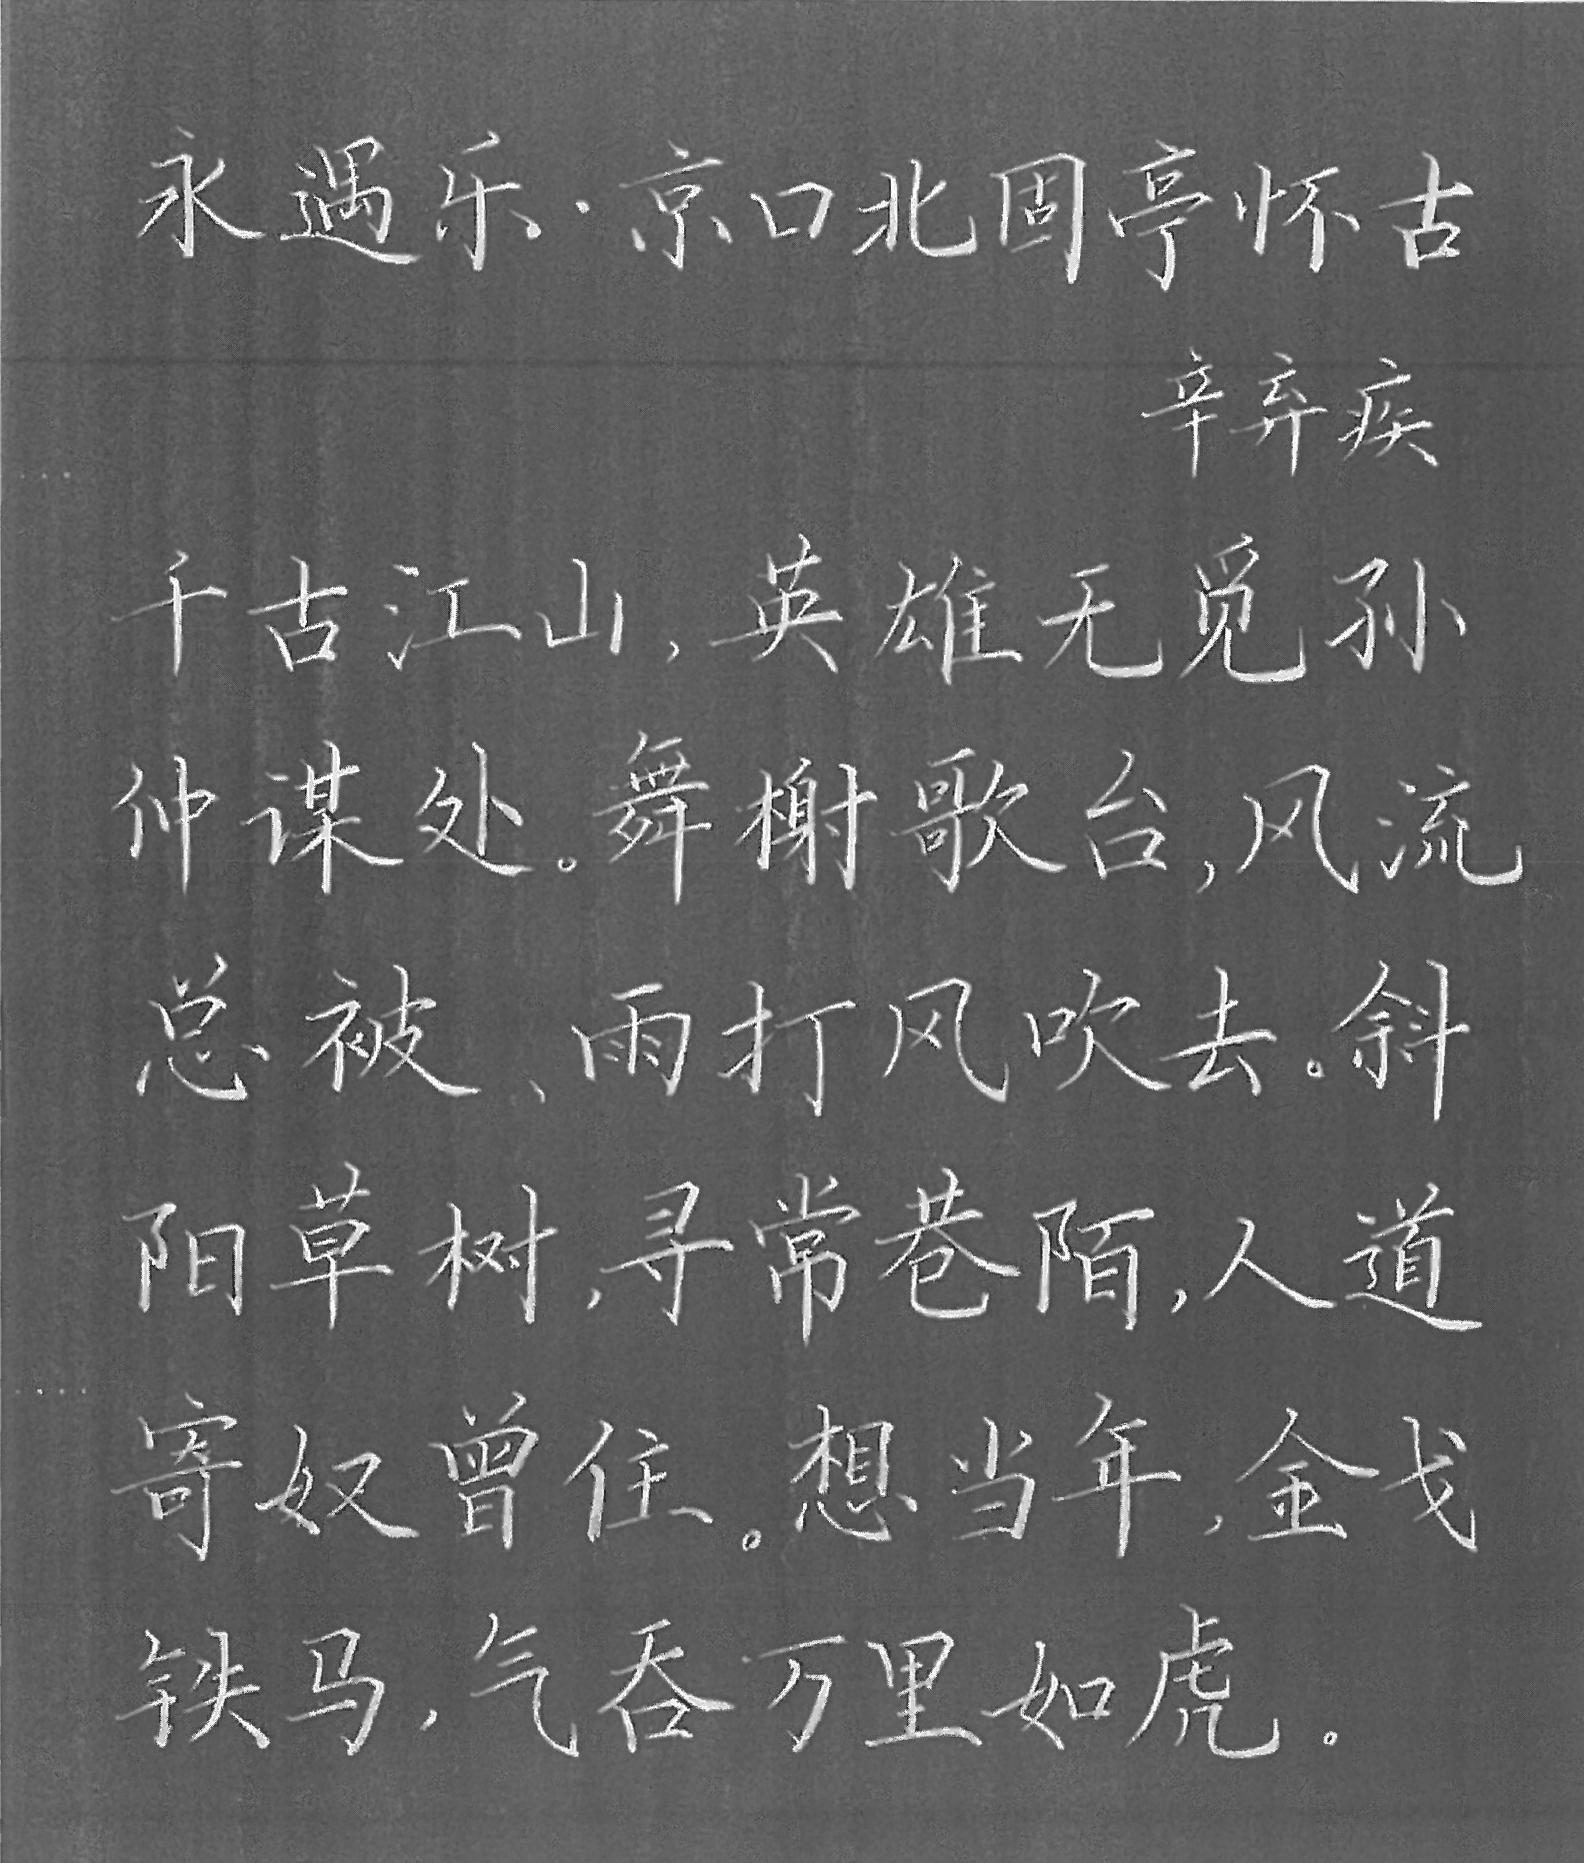 永遇乐·京口北固亭怀古
辛弃疾
千古江山,英雄无觅孙
仲谋处。舞榭歌台,风流
总被、雨打风吹去。斜
阳草树,寻常巷陌,人道
寄奴曾住。想当年,金戈
铁马,气吞万里如虎。